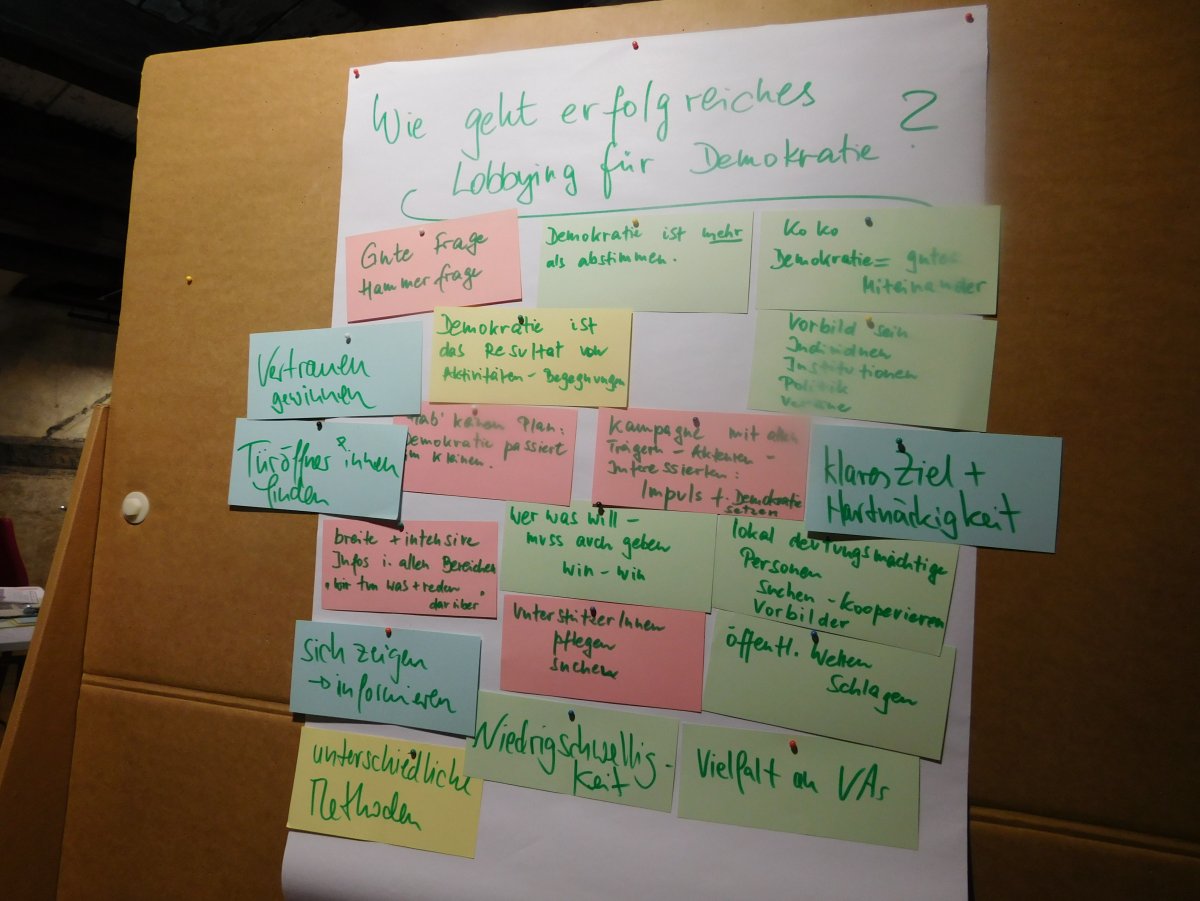 Wie geht erfolgreiches
Lobbying für Demokratie ?
Gute Frage
Hammerfrage
Demokratie ist mehr
als abstimmen.
KoKo
Demokratie = gutes
Miteinander
Vertrauen
gewinnen
Demokratie ist
das Resultat von
Aktivitäten - Begegnungen
Vorbild sein
Individuen
Institutionen
Politik
Vereine
Türöffner*innen
finden
Hab' keinen Plan:
Demokratie passiert
im Kleinen.
Kampagne mit allen
Trägern - Akteuren -
Interessierten:
Impuls f. Demokratie
setzen
klares Ziel +
Hartnäckigkeit
breite + intensive
Infos i. allen Bereichen
"wir tun was + reden
darüber"
wer was will -
muss auch geben
win - win
lokal deutungsmächtige
Personen
suchen - kooperieren
Vorbilder
sich zeigen
→ informieren
UnterstützerInnen
pflegen
suchen
öffentl. Wellen
schlagen
unterschiedliche
Methoden
Niedrigschwellig-
keit
Vielfalt an VAs